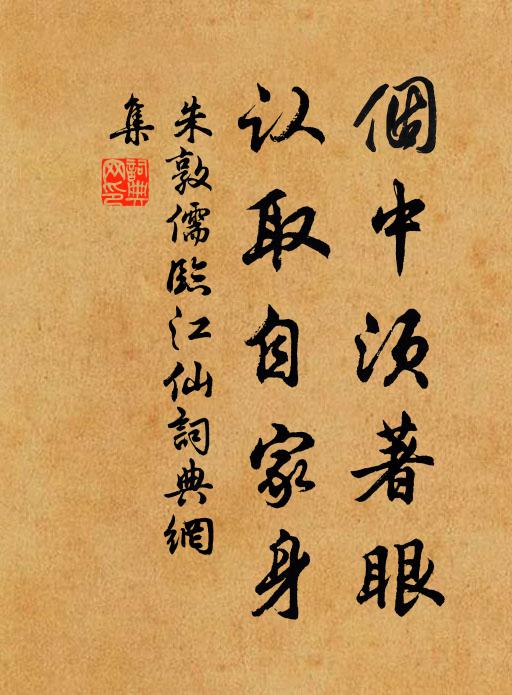 個中須著眼
认取自家身
朱敦儒臨江仙詞典網
集
詞典
网印